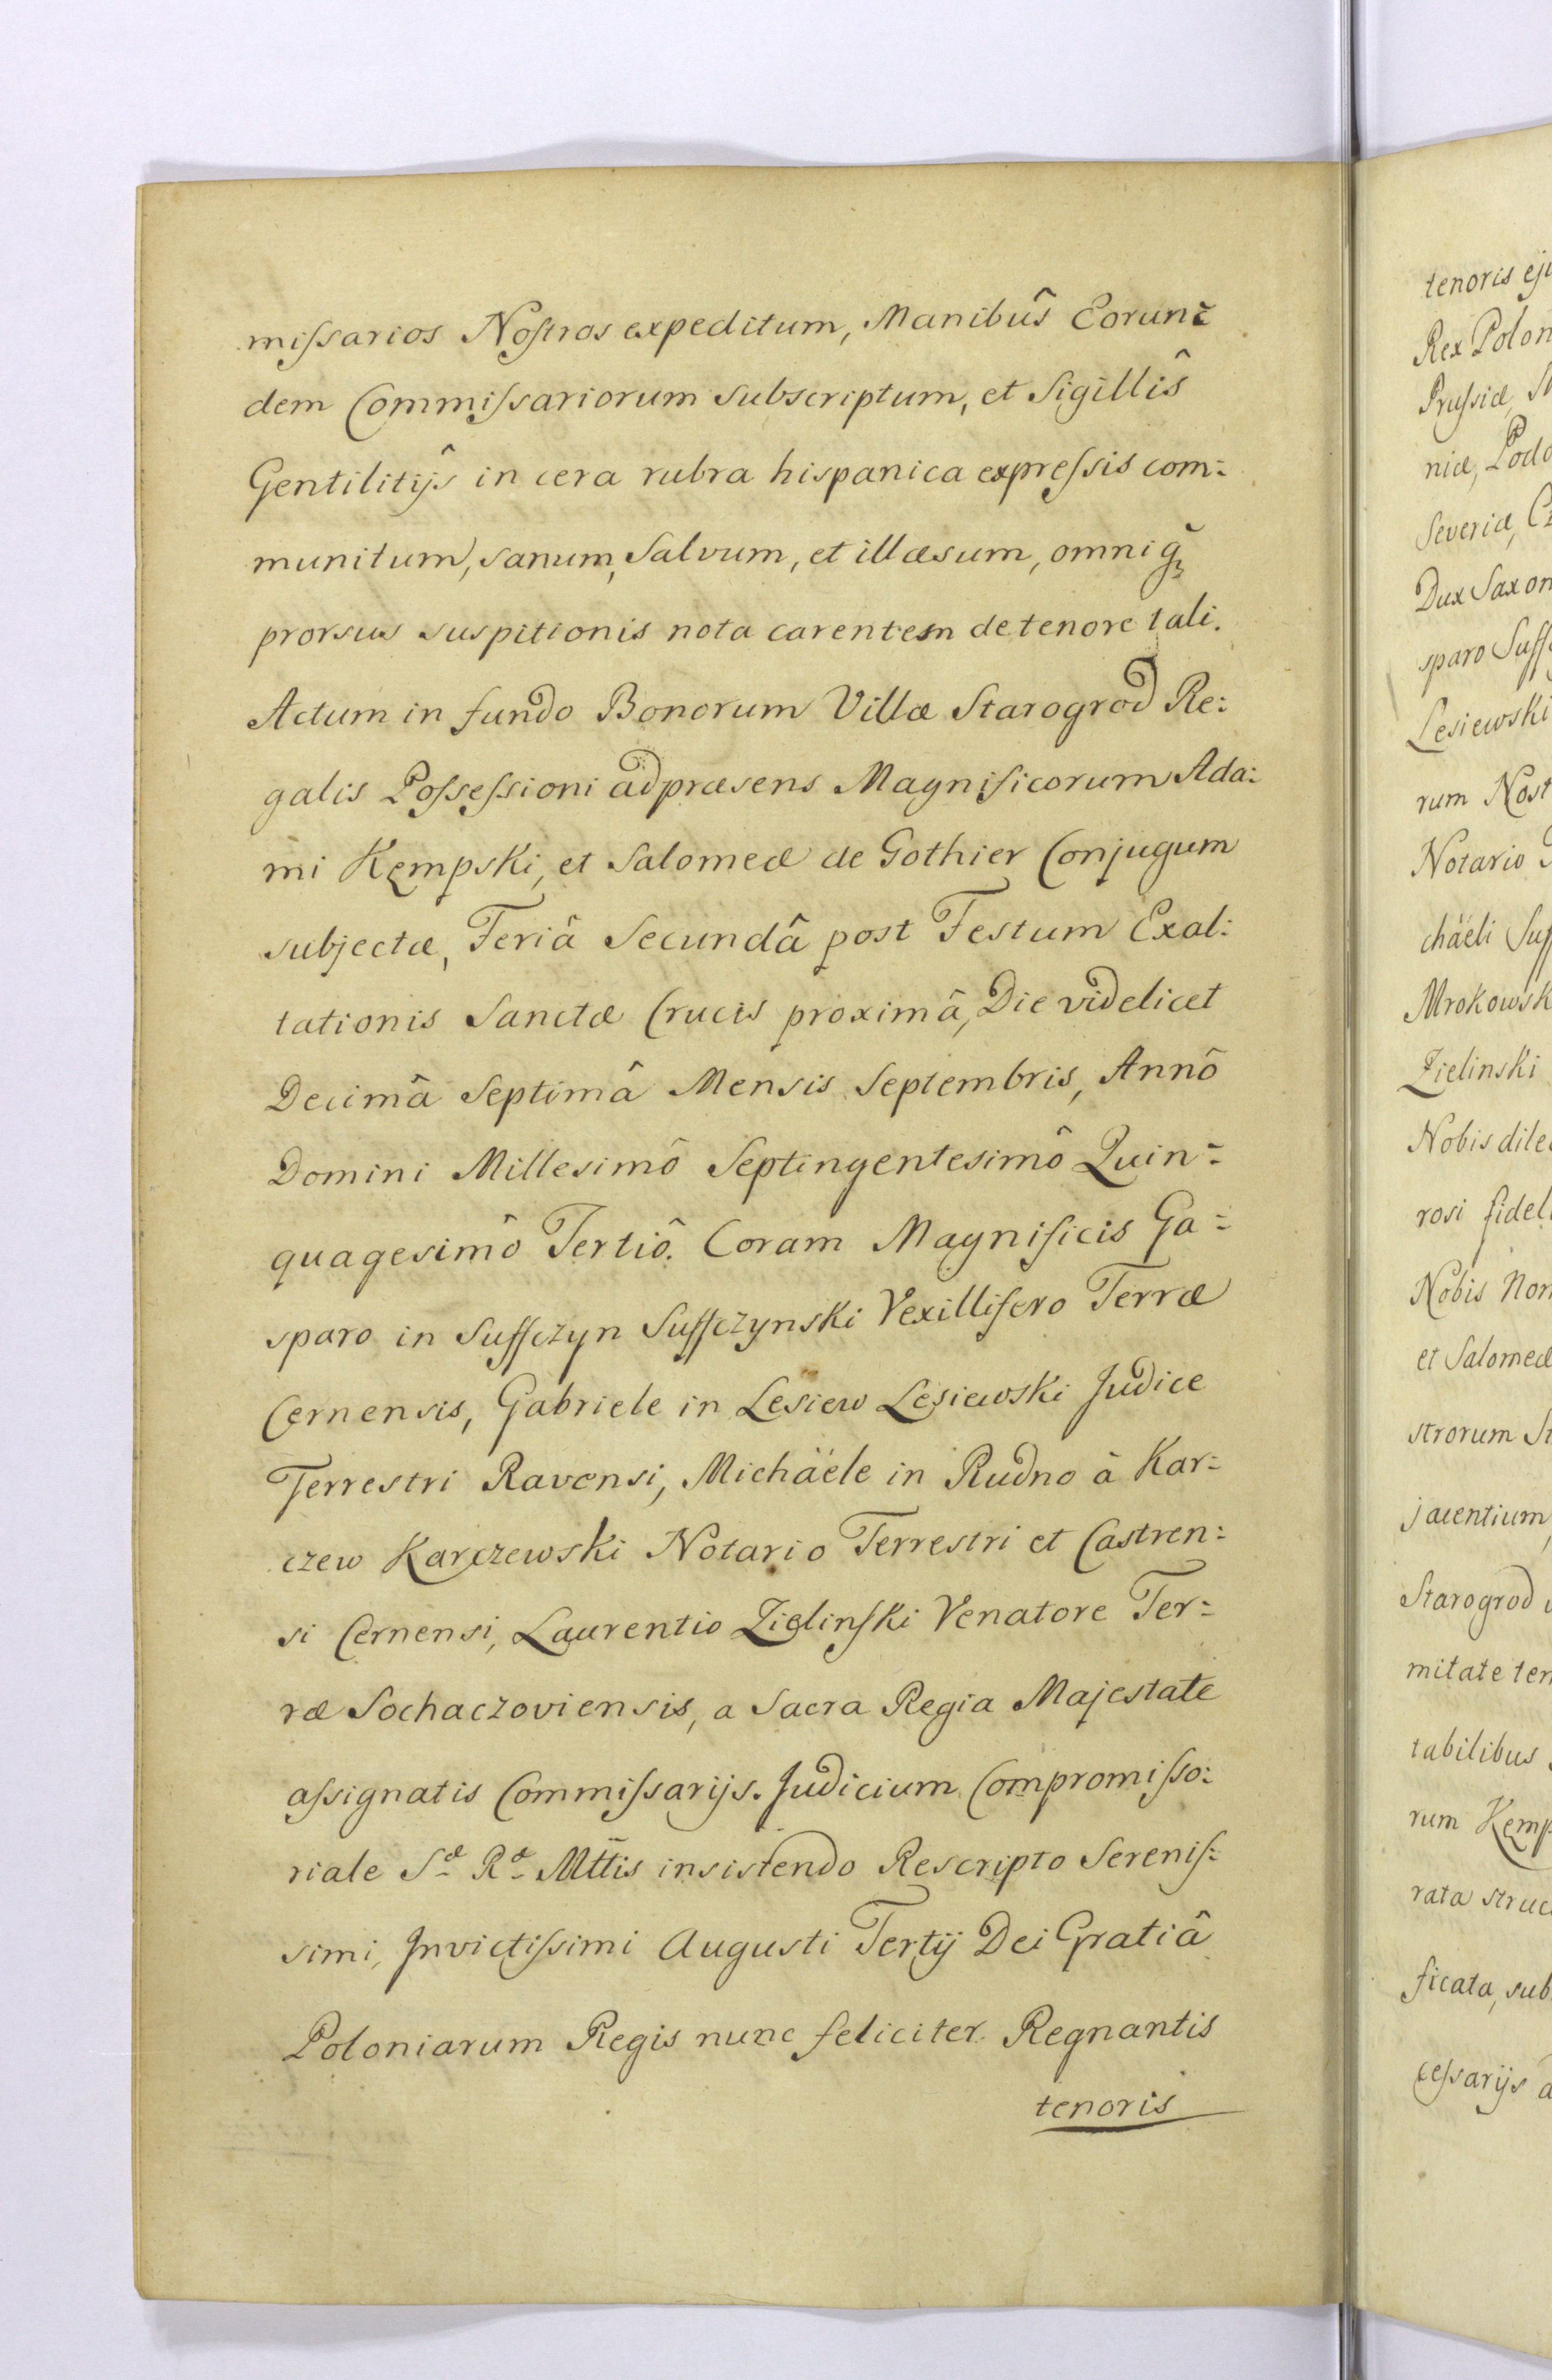 miſsarios Noſtros expeditum, Manibuŝ Eorun=
dem Commiſsariorum subscriptum, et Sigilliŝ
Gentilitijŝ in cera rubra hispanica expreſsis com=
munitum, sanum, Salvum, et illæsum, omniq̃
prorsus suspitionis nota carentem de tenore tali.
Actum in fundo Bonorum Villæ Starogrod Re=
galis Poſseſsioni ad præsens Magnificorum Ada=
mi Kempski, et Salomeæ de Gothier Conjugum
subjectæ, Feriâ Secundâ post Festum Exal=
tationis Sanctæ Crucis proximâ, Die videlicet
Decimâ Septimâ Mensis Septembris, Annô
Domini Millesimô Septingentesimô Quin=
quagesimô Tertiô. Coram Magnificis Ga=
sparo in Suffczyn Suffczynski Vexillifero Terræ
Cernensis, Gabriele in Lesiew Lesiewski Judice
Terrestri Ravensi, Michäele in Rudno â Kar=
czew Karczewski Notario Terrestri et Castren=
si Cernensi, Laurentio Zielinſki Venatore Ter=
ræ Sochaczoviensis, a Sacra Regia Majestate
aſsignatis Commiſsarijs. Judicium Compromiſso=
riale Sæ Ræ Mttis insistendo Rescripto Sereniſ=
simi, Invictiſsimi Augusti Tertij Dei Gratiâ
Poloniarum Regis nunc feliciter Regnantis
tenoris
tenoris
Rex
Pruſsiæ,
niæ,
Severiæ,
Dux
sparo
Lesiewski
rum
Notario
chäeli
Zielinski
Nobis
rosi
Nobis
et Salomeæ
strorum
jacentium
Starogrod
mitate
tabilibus
rum
rata
ficata,
ceſsarijs